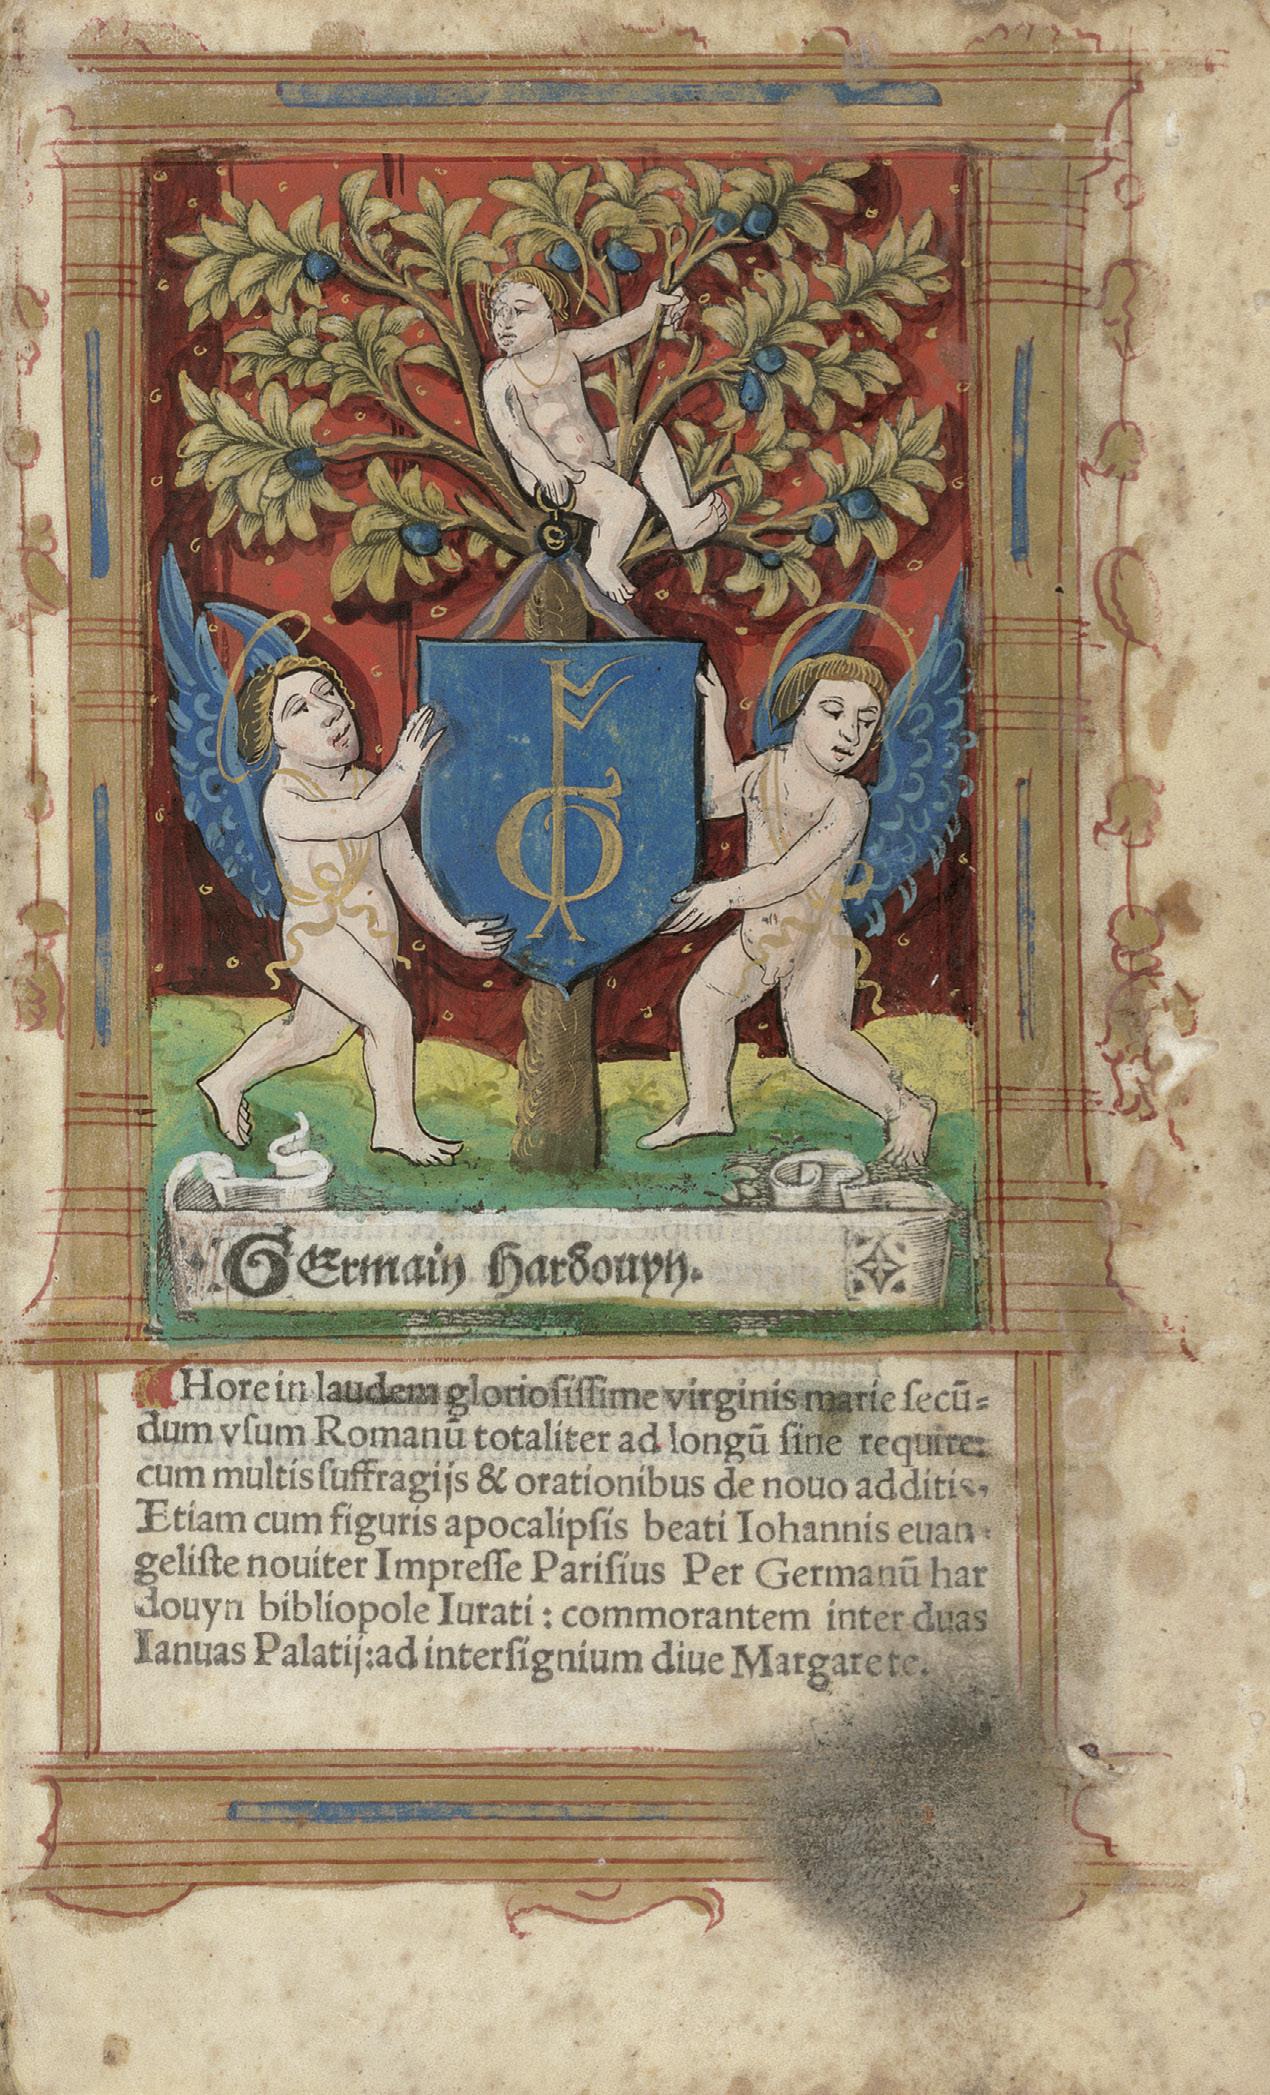 GErmain Hardouyn.
Hore in laudem glorioſiſſime virginis marie ſecū=
dum vſum Romanū totaliter ad longū ſine require:
cum multis ſuffragijs & orationibus de nouo additis.
Etiam cum figuris apocalipſis beati Iohannis euan
geliſte nouiter Impreſſe Pariſius Per Germanū har
douyn bibliopole Iurati: commorantem inter duas
Ianuas Palatij: ad interſignium diue Margarete.